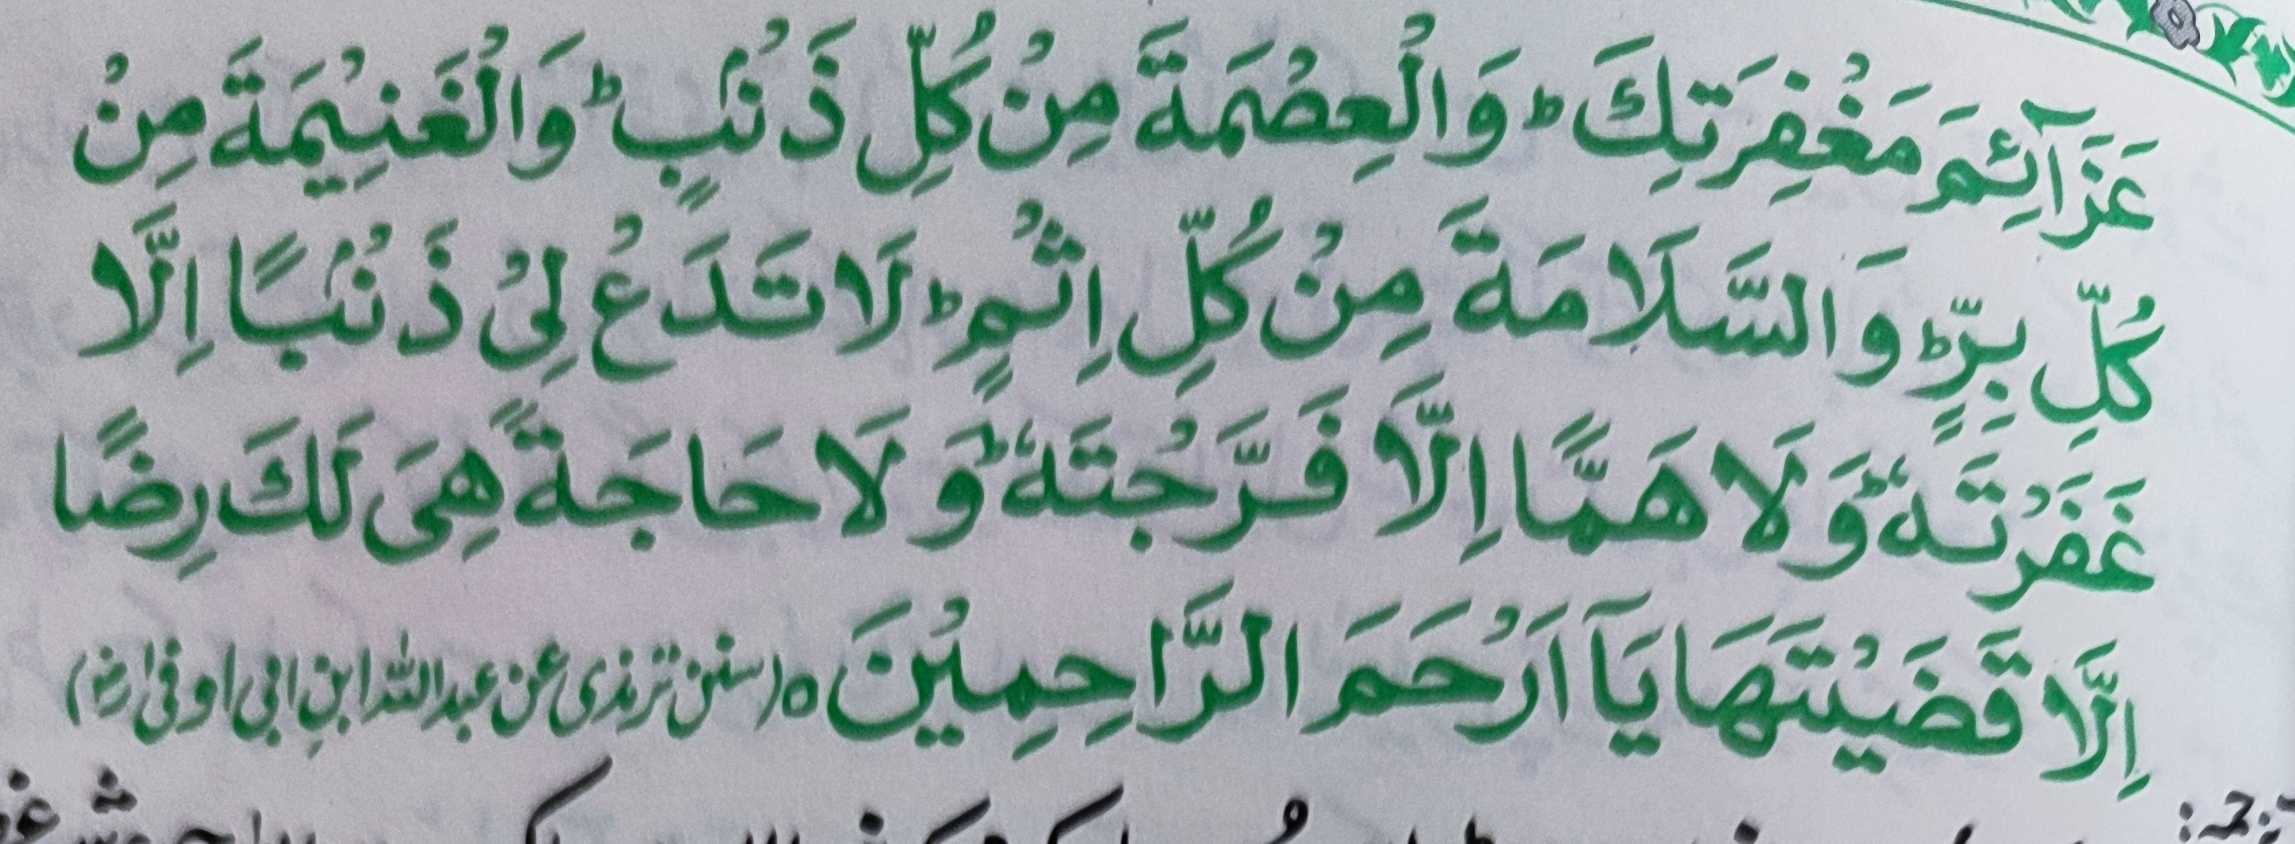 عَزَآئِمَ مَغْفِرَتِكَ ؕ وَالْعِصْمَةَ مِنْ كُلِّ ذَنْۢبٍ ؕ وَالْغَنِيْمَةَ مِنْ
كُلِّ بِرٍّ ؕ وَالسَّلَامَةَ مِنْ كُلِّ اِثْمٍ ؕ لَا تَدَعْ لِىْ ذَنْۢبًا اِلَّا
غَفَرْتَهٗ ؕ وَلَا هَمًّا اِلَّا فَرَّجْتَهٗ ؕ وَلَا حَاجَةً هِىَ لَكَ رِضًا
اِلَّا قَضَيْتَهَا يَآ اَرْحَمَ الرَّاحِمِيْنَ ه (سنن ترمذی عن عبداللہ ابنِ ابی اوفیٰ رضؓ)